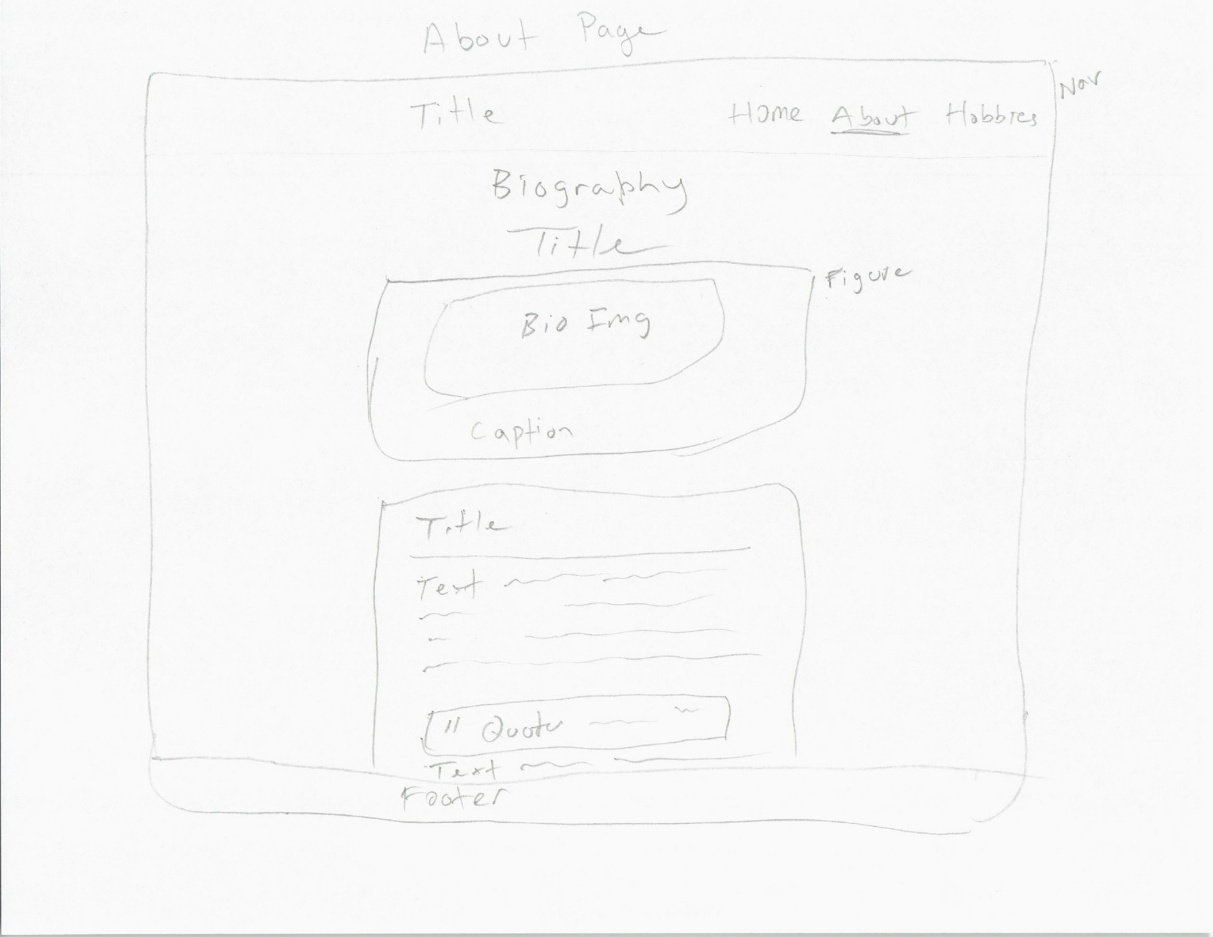 About Page
Title Home About Hobbies Nav
Biography
Title
Figure
Bio Img
Caption
Title
Text
" Quote
Text
Footer